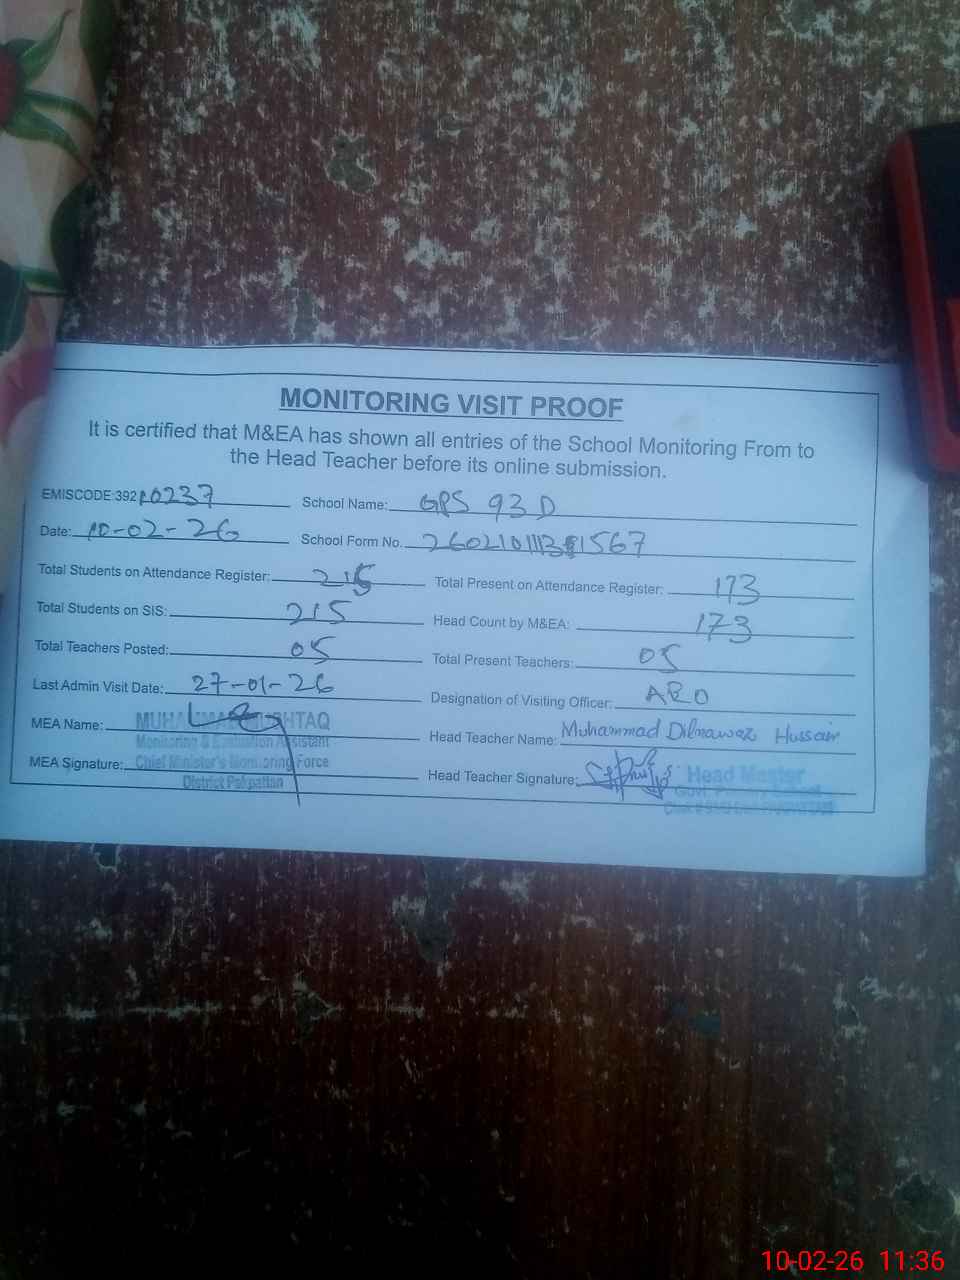 MONITORING VISIT PROOF
It is certified that M&EA has shown all entries of the School Monitoring From to
the Head Teacher before its online submission.
EMISCODE:392 10237 School Name: GPS 93 D
Date: 10-02-26 School Form No.
Total Students on Attendance Register: 215 Total Present on Attendance Register: 173
Total Students on SIS: 215 Head Count by M&EA: 173
Total Teachers Posted: 05 Total Present Teachers: 05
Last Admin Visit Date: 27-01-26 Designation of Visiting Officer: AEO
MEA Name: MUHAMMAD MUSHTAQ Head Teacher Name: Muhammad Dilnawaz Hussain
Monitoring & Evaluation Assistant
MEA Signature: Chief Minister's Monitoring Force Head Teacher Signature: Head Master
District Pakpattan Govt. Primary
10-02-26 11:36